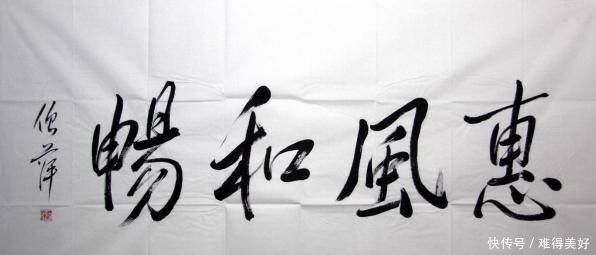 惠風和暢
快传号／难得美好